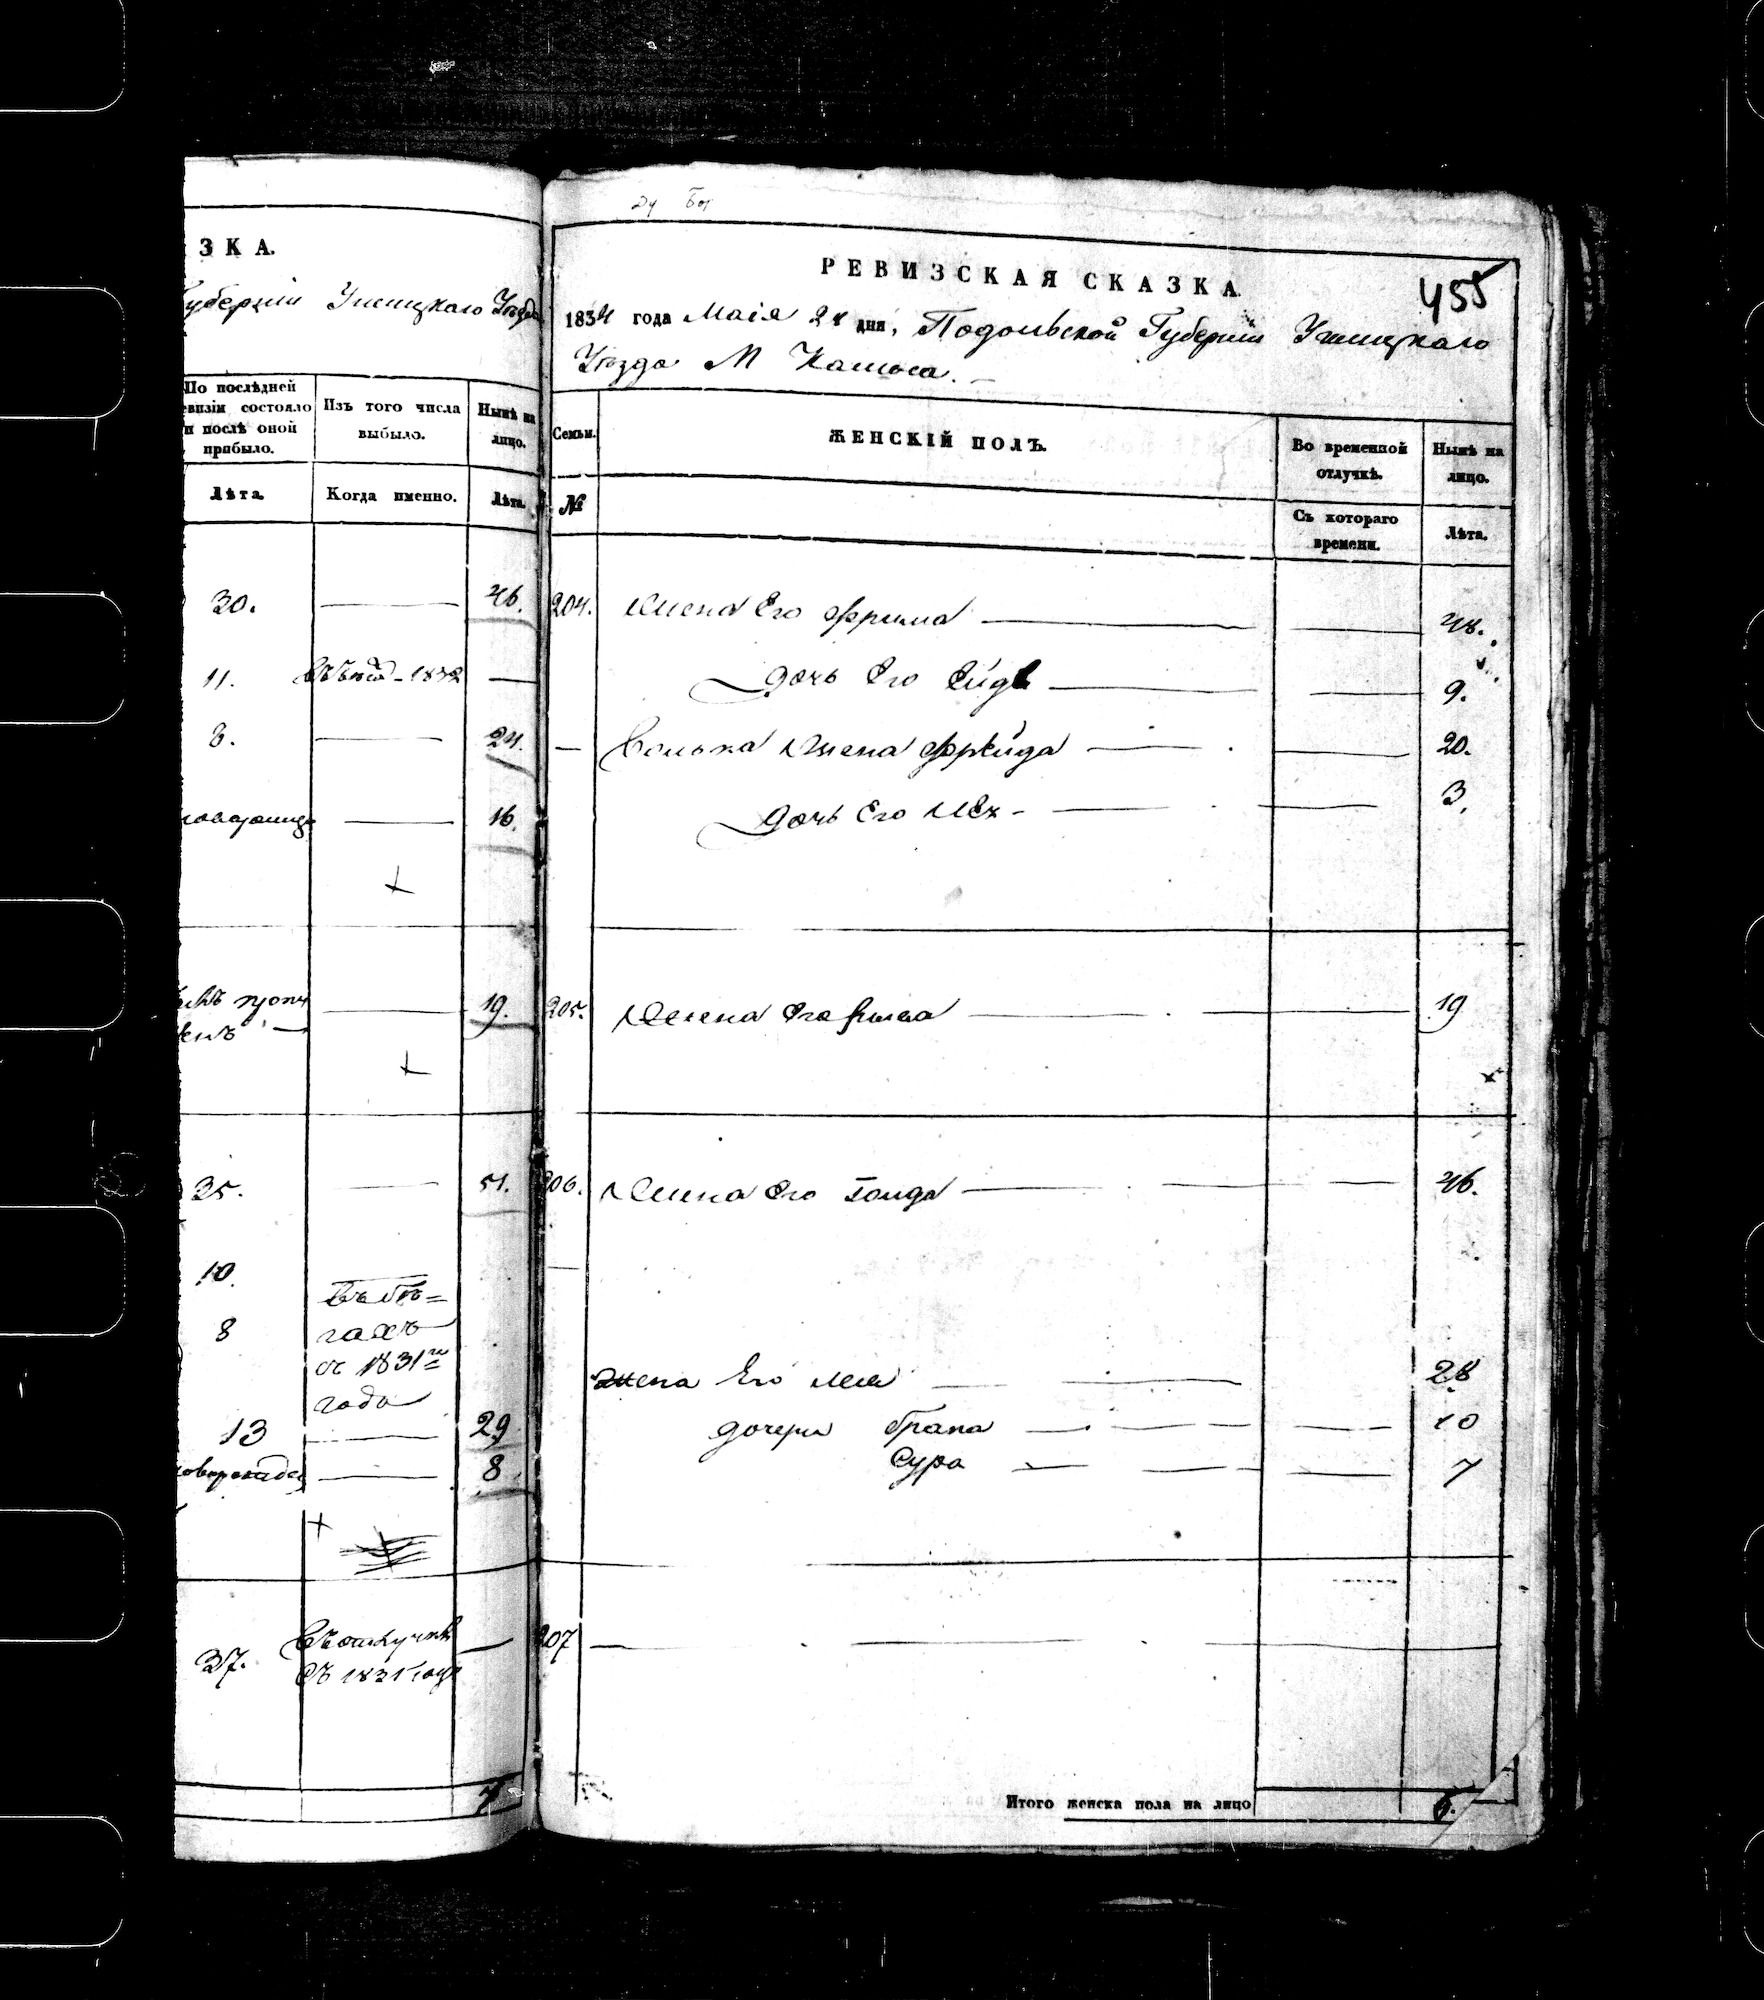 ЗКА.
Губерніи Ушицкаго Уѣзда
По послѣдней
ревизіи состояло
и послѣ оной
прибыло.
Изъ того числа
выбыло.
Нынѣ на
лицо.
Лѣта.
Когда именно.
Лѣта.
30. 46.
11. 1832
8. 24.
16.
+
19.
+
35. 51.
10.
Въ бѣ=
8 гахъ
съ 1831го
года
13 29
8
+
въ отлучкѣ
37. съ 1831 года
7
455
РЕВИЗСКАЯ СКАЗКА
1834 года Маія 24 дня, Подольской Губерніи Ушицкаго
Уѣзда М
Семьи.
ЖЕНСКІЙ ПОЛЪ.
Во временной
отлучкѣ.
Нынѣ на
лицо.
№
Съ котораго
времени.
Лѣта.
204. Жена Его Фрима 48.
дочь Его Сйдя 9.
Волька Жена Фрейда 20.
дочь Его 3.
205. Жена Его 19
206. Жена Его Голда 46.
Жена Его Лея 28
дочери Брана 10
Сура 7
207
Итого женска пола на лицо